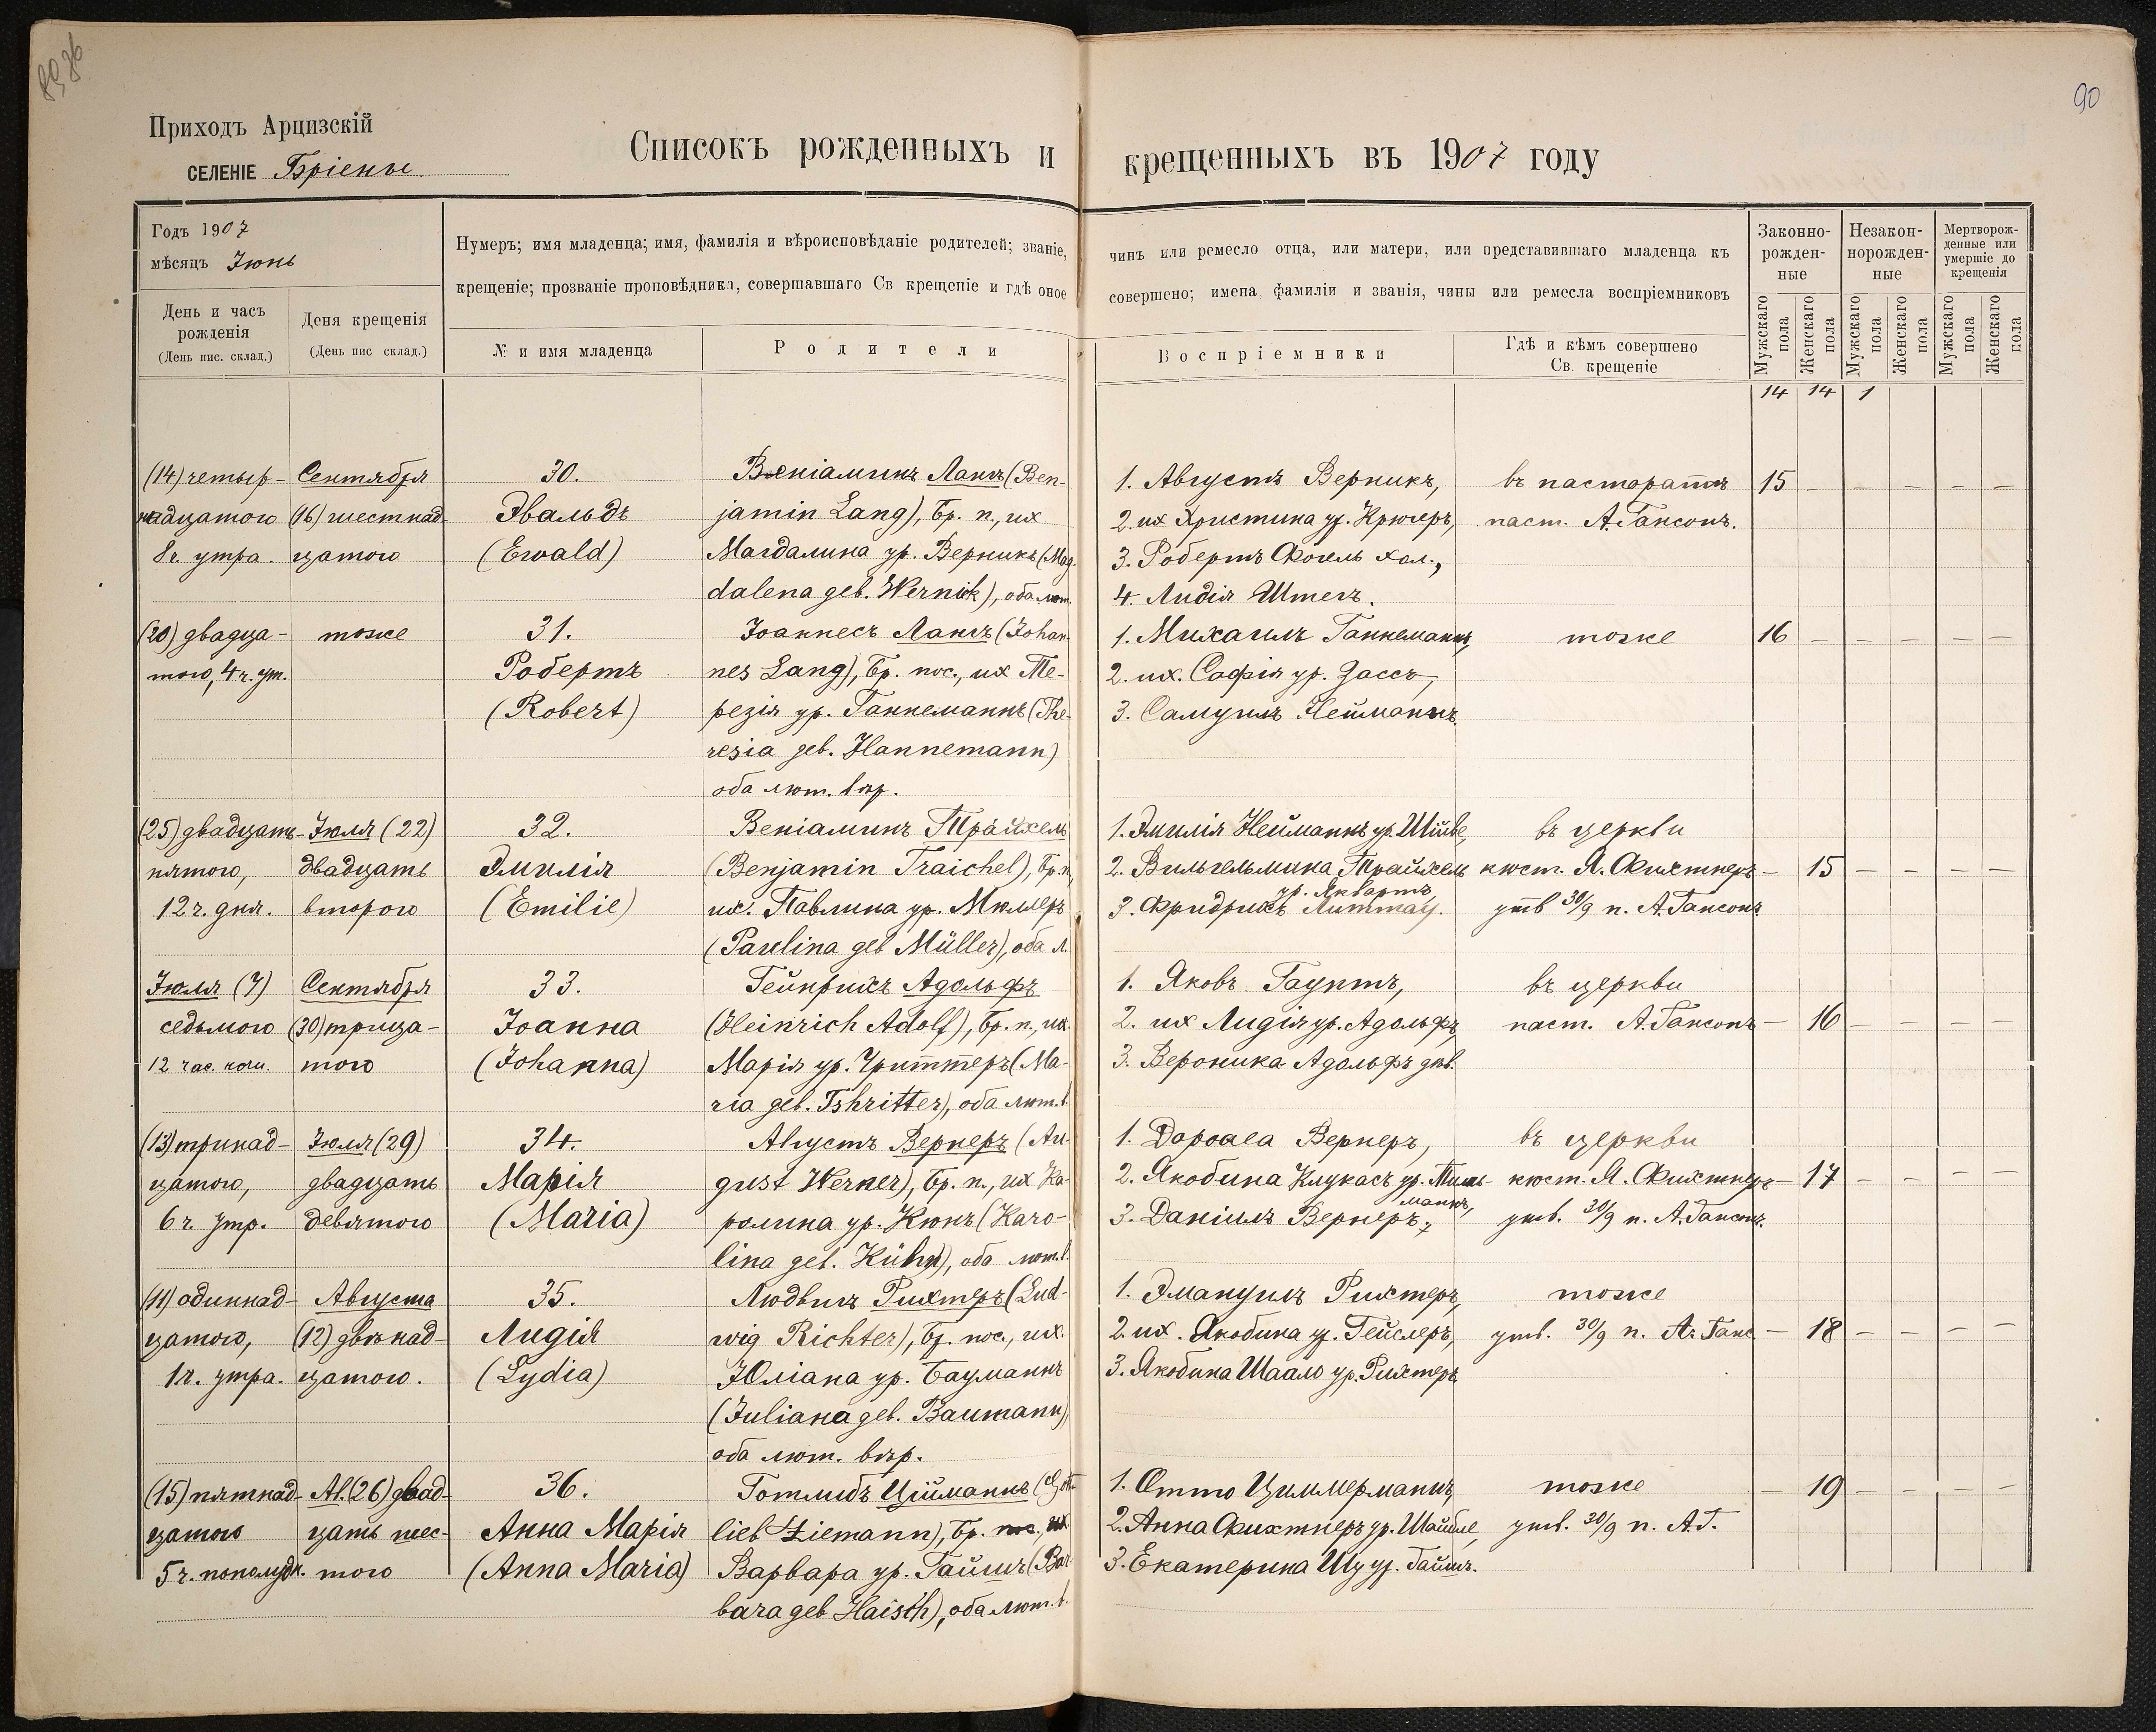 90
Приходъ Арцизскій
СЕЛЕНІЕ Бріены.
Списокъ рожденныхъ и крещенныхъ въ 1907 году
Годъ 1907
мѣсяцъ Іюнь
Нумеръ; имя младенца; имя, фамилія и вѣроисповѣданіе родителей; званіе, чинъ или ремесло отца, или матери, или представившаго младенца къ
крещеніе; прозваніе проповѣдника, совершавшаго Св крещеніе и гдѣ оное совершено; имена фамиліи и званія, чины или ремесла воспріемниковъ
День и часъ
рожденія
(День пис. склад.)
Деня крещенія
(День пис склад.)
№ и имя младенца
Родители
Воспріемники
Гдѣ и кѣмъ совершено
Св. крещеніе
Законно-
рожден-
ные
Незакон-
норожден-
ные
Мертворож-
денные или
умершіе до
крещенія
Мужскаго
пола
Женскаго
пола
Мужскаго
пола
Женскаго
пола
Мужскаго
пола
Женскаго
пола
14 14 1
(14) четыр-
надцатого
8 ч. утра.
Сентября
(16) шестнад
цатого
30.
Эвальдъ
(Ewald)
Веніаминъ Лангъ (Ben-
jamin Lang), Бр. п., их
Магдалина ур. Верникъ (Mag-
dalena geb. Wernik), оба лют.
1. Августъ Верникъ,
2. их Христина ур. Крюгеръ,
3. Робертъ Фогель хол.,
4. Лидія Штегъ.
въ пасторатѣ
паст. А. Гансонъ.
15 – – – – –
(20) двадца-
того, 4 ч. ут.
тоже
31.
Робертъ
(Robert)
Іоаннесъ Лангъ (Johan-
nes Lang), Бр. пос., их Те-
резія ур. Ганнеманнъ (The-
resia geb. Hannemann)
оба лют. вѣр.
1. Михаилъ Ганнеманнъ,
2. их. Софія ур. Зассъ,
3. Самуилъ Нейманнъ.
тоже
16 – – – – –
(25) двадцать-
пятого,
12 ч. дня.
Іюля (22)
двадцать
второго
32.
Эмилія
(Emilie)
Веніаминъ Трайхель
(Benjamin Traichel), Бр. п.,
их. Павлина ур. Мюллеръ
(Paulina geb Müller), оба л.
1. Эмилія Нейманнъ ур. Шиве,
2. Вильгельмина Трайхель
ур. Яквартъ
3. Фридрихъ Литтау.
въ церкви
кюст. Я. Фихтнеръ
утв 30/9 п. А. Гансонъ
– 15 – – – –
Іюля (7)
седьмого
12 час. ночи.
Сентября
(30) трица-
того
33.
Іоанна
(Johanna)
Гейнрихъ Адольфъ
(Heinrich Adolf), Бр. п., их.
Марія ур. Чриттеръ (Ma-
ria geb. Tshritter), оба лют. в.
1. Яковъ Гауптъ,
2. их Лидія ур. Адольфъ,
3. Вероника Адольфъ дѣв.
въ церкви
паст. А. Гансонъ
– 16 – – – –
(13) тринад-
цатого,
6 ч. утр.
Іюля (29)
двадцать
девятого
34.
Марія
(Maria)
Августъ Вернеръ (Au-
gust Werner), Бр. п., их Ка-
ролина ур. Кюнъ (Karo-
lina geb. Kühn), оба лют. в.
1. Дороѳеа Вернеръ,
2. Якобина Клукасъ ур. Тиль-
манъ,
3. Даніилъ Вернеръ.
въ церкви
кюст. Я. Фихтнеръ
утв. 30/9 п. А. Гансонъ.
– 17 – – – –
(11) одиннад-
цатого,
1 ч. утра.
Августа
(12) двѣнад-
цатого.
35.
Лидія
(Lydia)
Людвигъ Рихтеръ (Lud-
wig Richter), Бр. пос., их.
Юліана ур. Бауманнъ
(Juliana geb. Baumann)
оба лют. вѣр.
1. Эмануилъ Рихтеръ,
2. их. Якобина ур. Гейслеръ,
3. Якобина Шаало ур. Рихтеръ
тоже
утв. 30/9 п. А. Ганс
– 18 – – – –
(15) пятнад-
цатого
5 ч. пополудн.
Ав. (26) двад-
цать шес-
того
36.
Анна Марія
(Anna Maria)
Готлибъ Цийманнъ (Gott-
lieb Ziemann), Бр. пос., их
Варвара ур. Гайшъ (Bar-
bara geb Haisch), оба лют. в.
1. Отто Циммерманнъ,
2. Анна Фихтнеръ ур. Шайбле,
3. Екатерина Шу ур. Гайшъ.
тоже
утв. 30/9 п. А.Г.
– 19 – – – –